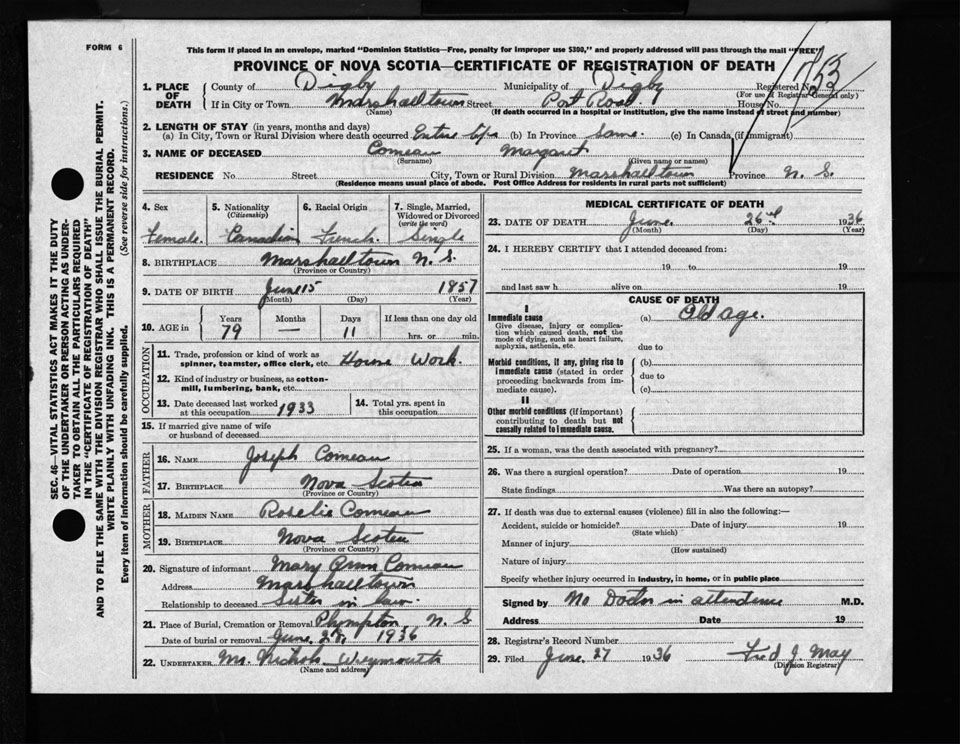 FORM 6
This form if placed in an envelope, marked "Dominion Statistics—Free, penalty for improper use $300," and properly addressed will pass through the mail "FREE"
PROVINCE OF NOVA SCOTIA—CERTIFICATE OF REGISTRATION OF DEATH
1. PLACE OF DEATH County of Digby Municipality of Digby Registered No. 753
(For use of Registrar General only)
If in City or Town Marshalltown Street Post Road House No.
(Name) (If death occurred in a hospital or institution, give the name instead of street and number)
2. LENGTH OF STAY (in years, months and days)
(a) In City, Town or Rural Division where death occurred Entire life (b) In Province Same. (c) In Canada (if immigrant)
3. NAME OF DECEASED Comeau Margaret
(Surname) (Given name or names)
RESIDENCE No. Street City, Town or Rural Division Marshalltown Province N. S.
(Residence means usual place of abode. Post Office Address for residents in rural parts not sufficient)
4. Sex 5. Nationality (Citizenship) 6. Racial Origin 7. Single, Married, Widowed or Divorced (write the word)
Female. Canadian French. Single
8. BIRTHPLACE Marshalltown N. S.
(Province or Country)
9. DATE OF BIRTH June 15 1857
(Month) (Day) (Year)
10. AGE in Years Months Days If less than one day old
79 — 11 hrs. or min.
OCCUPATION
11. Trade, profession or kind of work as spinner, teamster, office clerk, etc. House Work.
12. Kind of industry or business, as cotton-mill, lumbering, bank, etc.
13. Date deceased last worked at this occupation 1933 14. Total yrs. spent in this occupation
15. If married give name of wife or husband of deceased
FATHER
16. NAME Joseph Comeau
17. BIRTHPLACE Nova Scotia
(Province or Country)
MOTHER
18. MAIDEN NAME Roselie Comeau
19. BIRTHPLACE Nova Scotia
(Province or Country)
20. Signature of informant Mary Ann Comeau
Address Marshalltown
Relationship to deceased Sister in law.
21. Place of Burial, Cremation or Removal Plympton, N. S
Date of burial or removal June. 28, 1936
22. UNDERTAKER Mr. Weymouth
(Name and address)
MEDICAL CERTIFICATE OF DEATH
23. DATE OF DEATH June. 26 1936
(Month) (Day) (Year)
24. I HEREBY CERTIFY that I attended deceased from:
19 to 19
and last saw h alive on 19
CAUSE OF DEATH
I
Immediate cause (a) Old Age.
Give disease, injury or complication which caused death, not the mode of dying, such as heart failure, asphyxia, asthenia, etc.
due to
Morbid conditions, if any, giving rise to immediate cause (stated in order proceeding backwards from immediate cause).
(b)
due to
(c)
II
Other morbid conditions (if important) contributing to death but not causally related to immediate cause.
25. If a woman, was the death associated with pregnancy?
26. Was there a surgical operation? Date of operation 19
State findings Was there an autopsy?
27. If death was due to external causes (violence) fill in also the following:—
Accident, suicide or homicide? Date of injury 19
(State which)
Manner of injury
(How sustained)
Nature of injury
Specify whether injury occurred in industry, in home, or in public place
Signed by No Doctor in attendence M.D.
Address Date 19
28. Registrar's Record Number
29. Filed June. 27 1936 Fred J. May
(Division Registrar)
SEC. 46—VITAL STATISTICS ACT MAKES IT THE DUTY
OF THE UNDERTAKER OR PERSON ACTING AS UNDER-
TAKER TO OBTAIN ALL THE PARTICULARS REQUIRED
IN THE "CERTIFICATE OF REGISTRATION OF DEATH"
AND TO FILE THE SAME WITH THE DIVISION REGISTRAR WHO SHALL ISSUE THE BURIAL PERMIT.
WRITE PLAINLY WITH UNFADING INK. THIS IS A PERMANENT RECORD.
Every item of information should be carefully supplied. (See reverse side for instructions.)